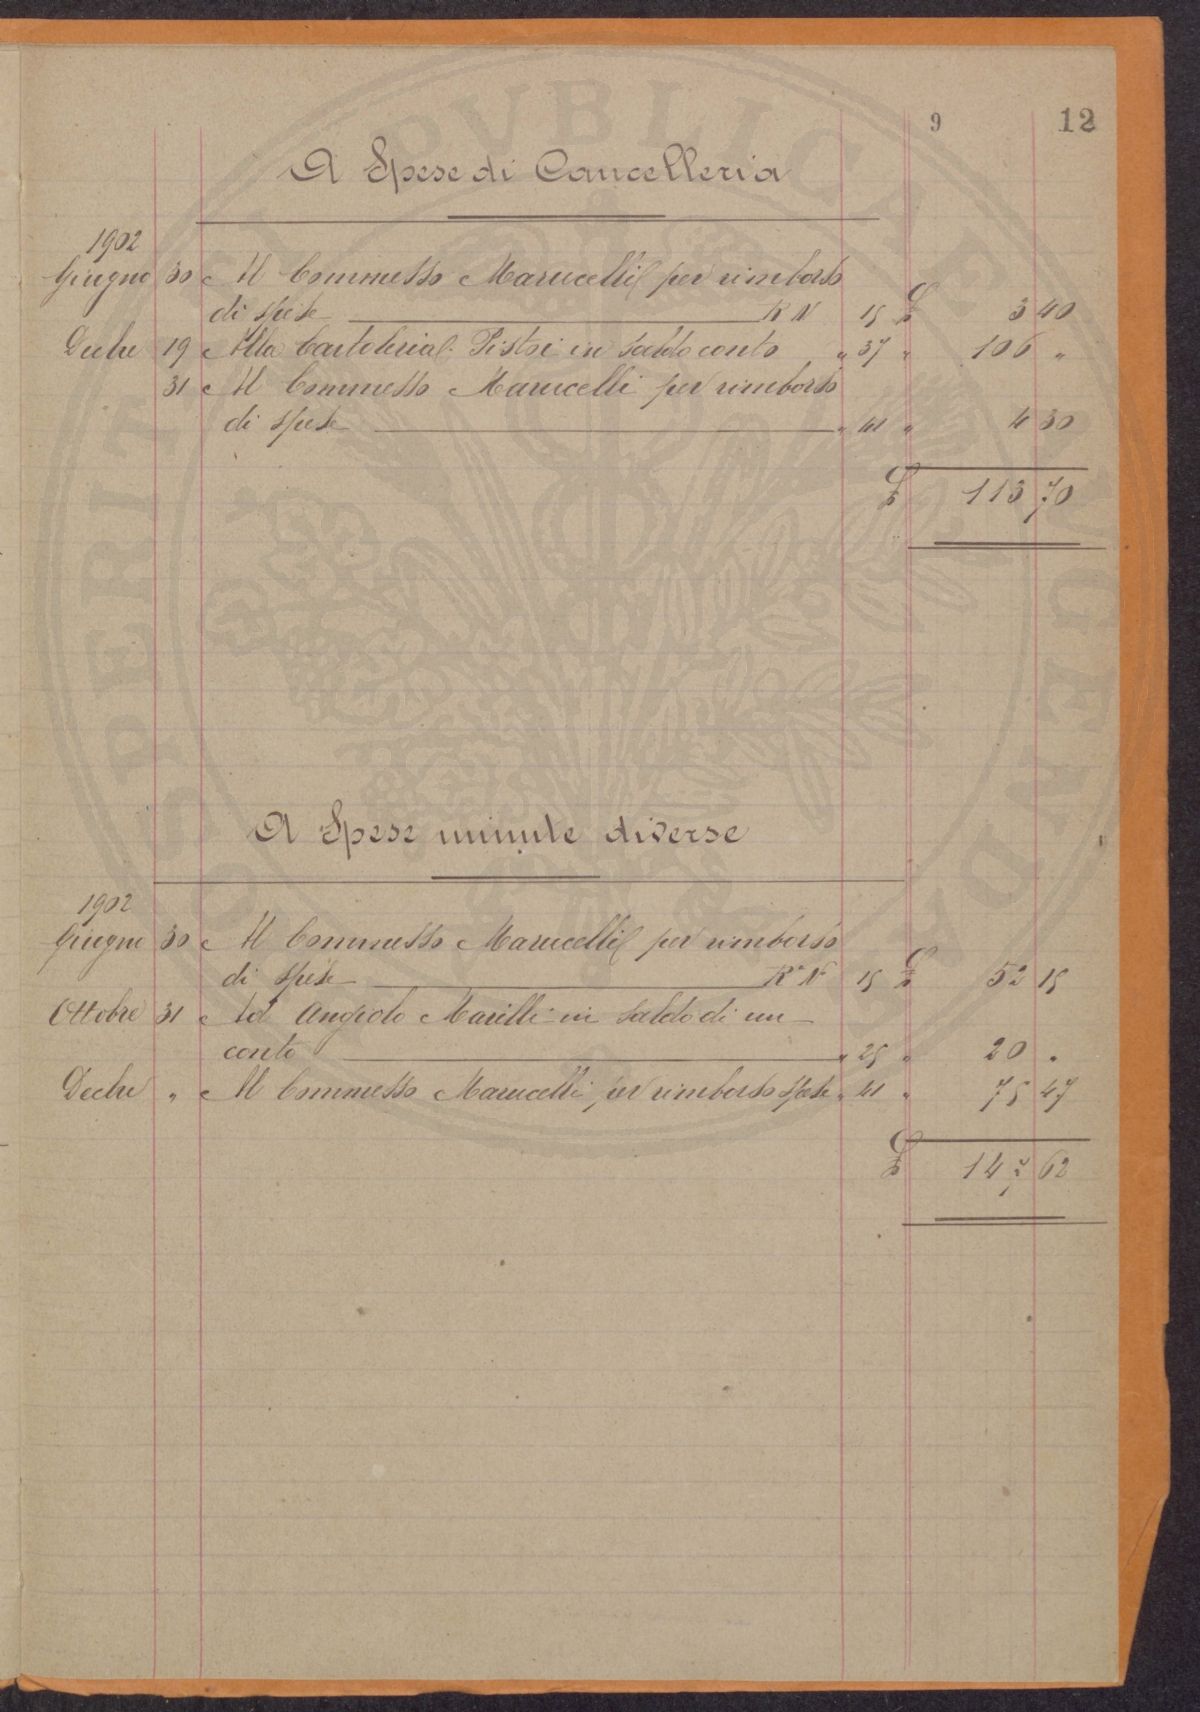 9 12
A Spese di Cancelleria
1902
Giugno 30 Al Commesso Marucelli per rimborso
di spese R N 15 £ 3 40
Decbre 19 Alla Cartoleria Pistoi in saldo conto " 37 " 106 "
31 Al Commesso Marucelli per rimborso
di spese " 41 " 4 30
£ 113 70
A Spese minute diverse
1902
Giugno 30 Al Commesso Marucelli per rimborso
di spese Ra No 15 £ 52 15
Ottobre 31 Ad Angiolo Marilli in saldo di un
conto " 25 " 20 "
Decbre " Al Commesso Marucelli per rimborso spese " 41 " 75 47
£ 147 62